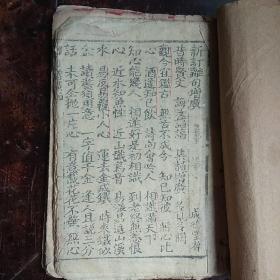 新訂句增廣
昔時賢文 誨汝諄諄 集韻增廣 多見多聞
觀今宜鑑古 無古不成今 知己知彼 將心比
心 酒逢知己飲 詩向會人吟 相識滿天下
知心能幾人 相逢好是初相識 到老終無怨恨
心 近水知魚性 近山識鳥音 易漲易退山溪
水 易反易覆小人心 運去金成鐵 時來鐵似
金 讀書須用意 一字值千金 逢人且說三分
話 未可全抛一片心 有意栽花花不發 無心